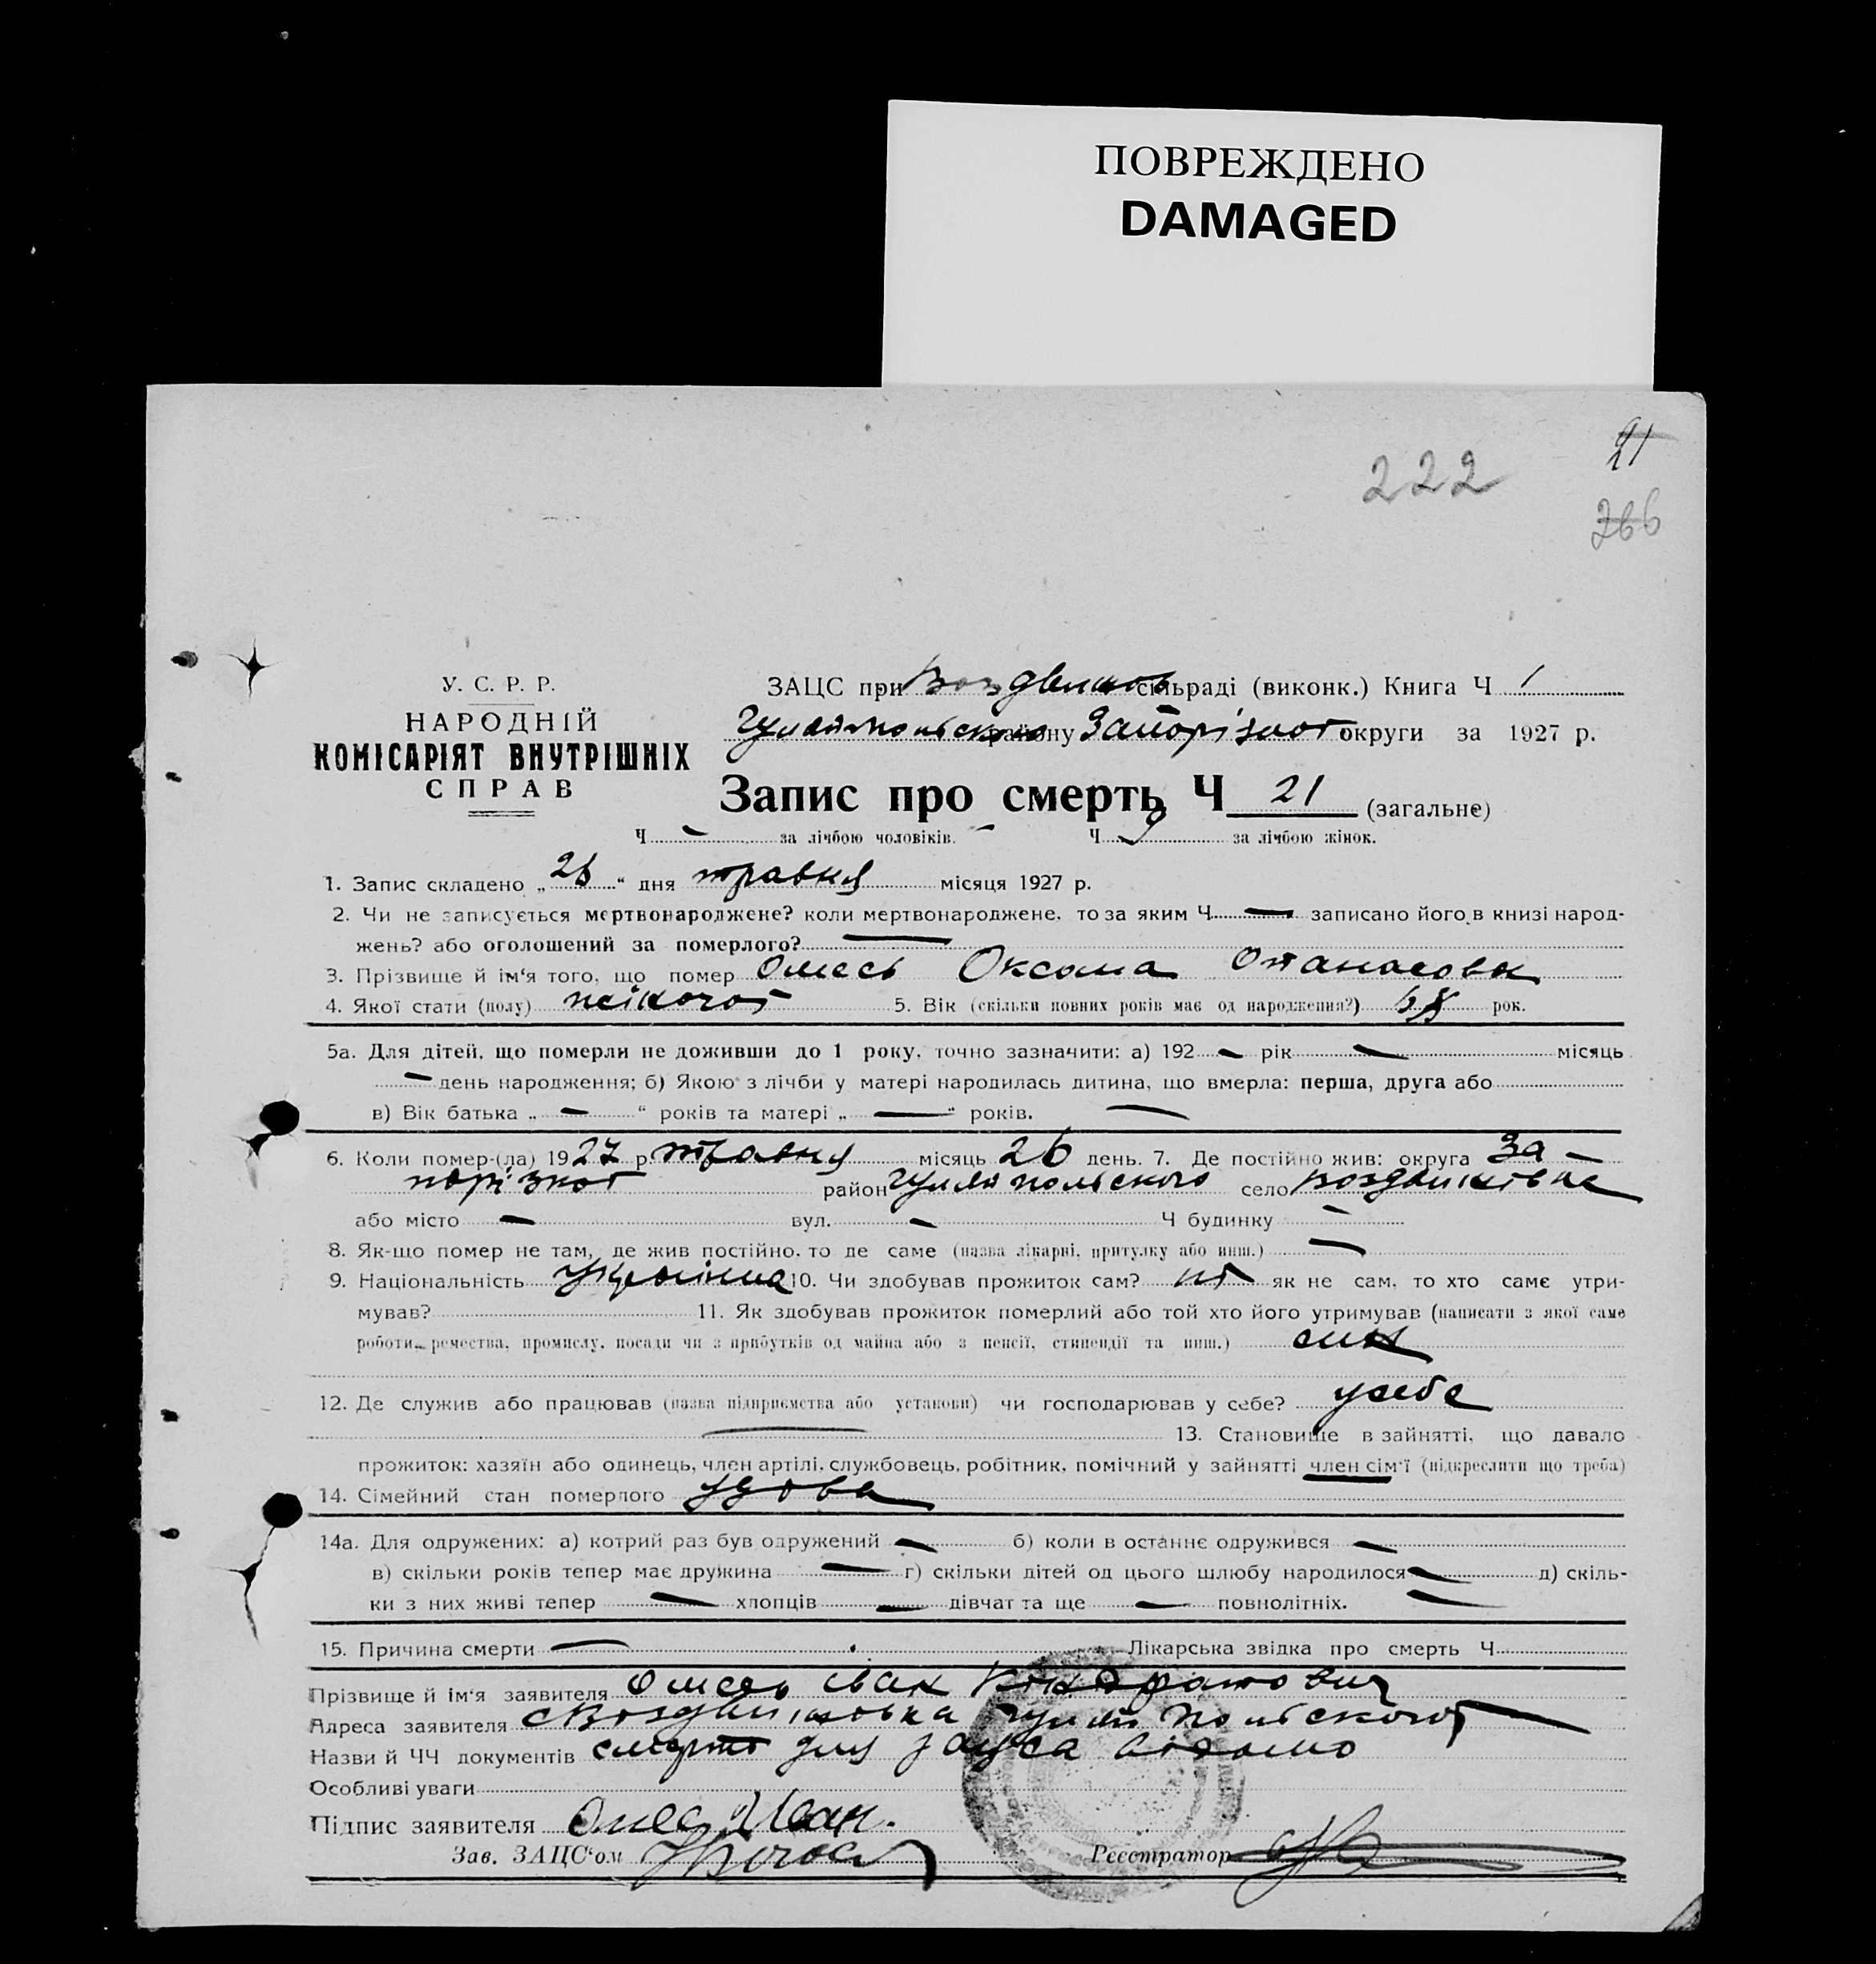 ПОВРЕЖДЕНО
DAMAGED
21
222
266
У. С. Р. Р.
НАРОДНІЙ
КОМІСАРІЯТ ВНУТРІШНІХ
СПРАВ
ЗАЦС при Воздвижів сільраді (виконк.) Книга Ч 1
Гуляйпольського району Запорізької округи за 1927 р.
Запис про смерть Ч 21 (загальне)
Ч — за лічбою чоловіків. — Ч 9 за лічбою жінок.
1. Запис складено „ 26 “ дня травня місяця 1927 р.
2. Чи не записується мертвонароджене? коли мертвонароджене, то за яким Ч — записано його в книзі народ-
жень? або оголошений за померлого? —
3. Прізвище й ім‘я того, що помер Омесь Оксана Опанасовн
4. Якої стати (полу) жіночої 5. Вік (скільки повних років має од народження?) рок.
5а. Для дітей, що померли не доживши до 1 року, точно зазначити: а) 192 — рік — місяць
— день народження; б) Якою з лічби у матері народилась дитина, що вмерла: перша, друга або
в) Вік батька „ — “ років та матері „ — “ років. —
6. Коли помер-(ла) 1927 р. травня місяць 26 день. 7. Де постійно жив: округа За-
порізької район Гуляйпольського село Воздвижівка
або місто — вул. — Ч будинку —
8. Як-що помер не там, де жив постійно, то де саме (назва лікарні, притулку або инш.) —
9. Національність Українка 10. Чи здобував прожиток сам? ні як не сам, то хто саме утри-
мував? 11. Як здобував прожиток померлий або той хто його утримував (написати з якої саме
роботи, ремества, промислу, посади чи з прибутків од майна або з пенсії, стипендії та инш.) син
12. Де служив або працював (назва підприємства або установи) чи господарював у себе? у себе
— 13. Становище в зайнятті, що давало
прожиток: хазяїн або одинець, член артілі, службовець, робітник, помічний у зайнятті член сім‘ї (підкреслити що треба)
14. Сімейний стан померлого удова
14а. Для одружених: а) котрий раз був одружений — б) коли в останнє одружився —
в) скільки років тепер має дружина — г) скільки дітей од цього шлюбу народилося — д) скіль-
ки з них живі тепер — хлопців — дівчат та ще — повнолітніх. —
15. Причина смерти — Лікарська звідка про смерть Ч
Прізвище й ім‘я заявителя Омесь Іван Кіндратович
Адреса заявителя с Воздвижовка Гуляйпольського
Назви й ЧЧ документів смерть для відомо
Особливі уваги
Підпис заявителя Омес Иван.
Зав. ЗАЦС‘ом
Реєстратор